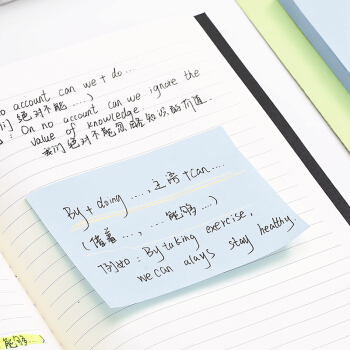 no account can we + do ...
们绝对不能 ....)
: On no account can we ignore the
value of knowledge.
我们绝对不能忽略知识的价值.
By + doing ...., 主语 + can ....
(借着 ..., ... 能够 ...)
例如: By taking exercise,
we can alays stay healthy.
能够 ...)